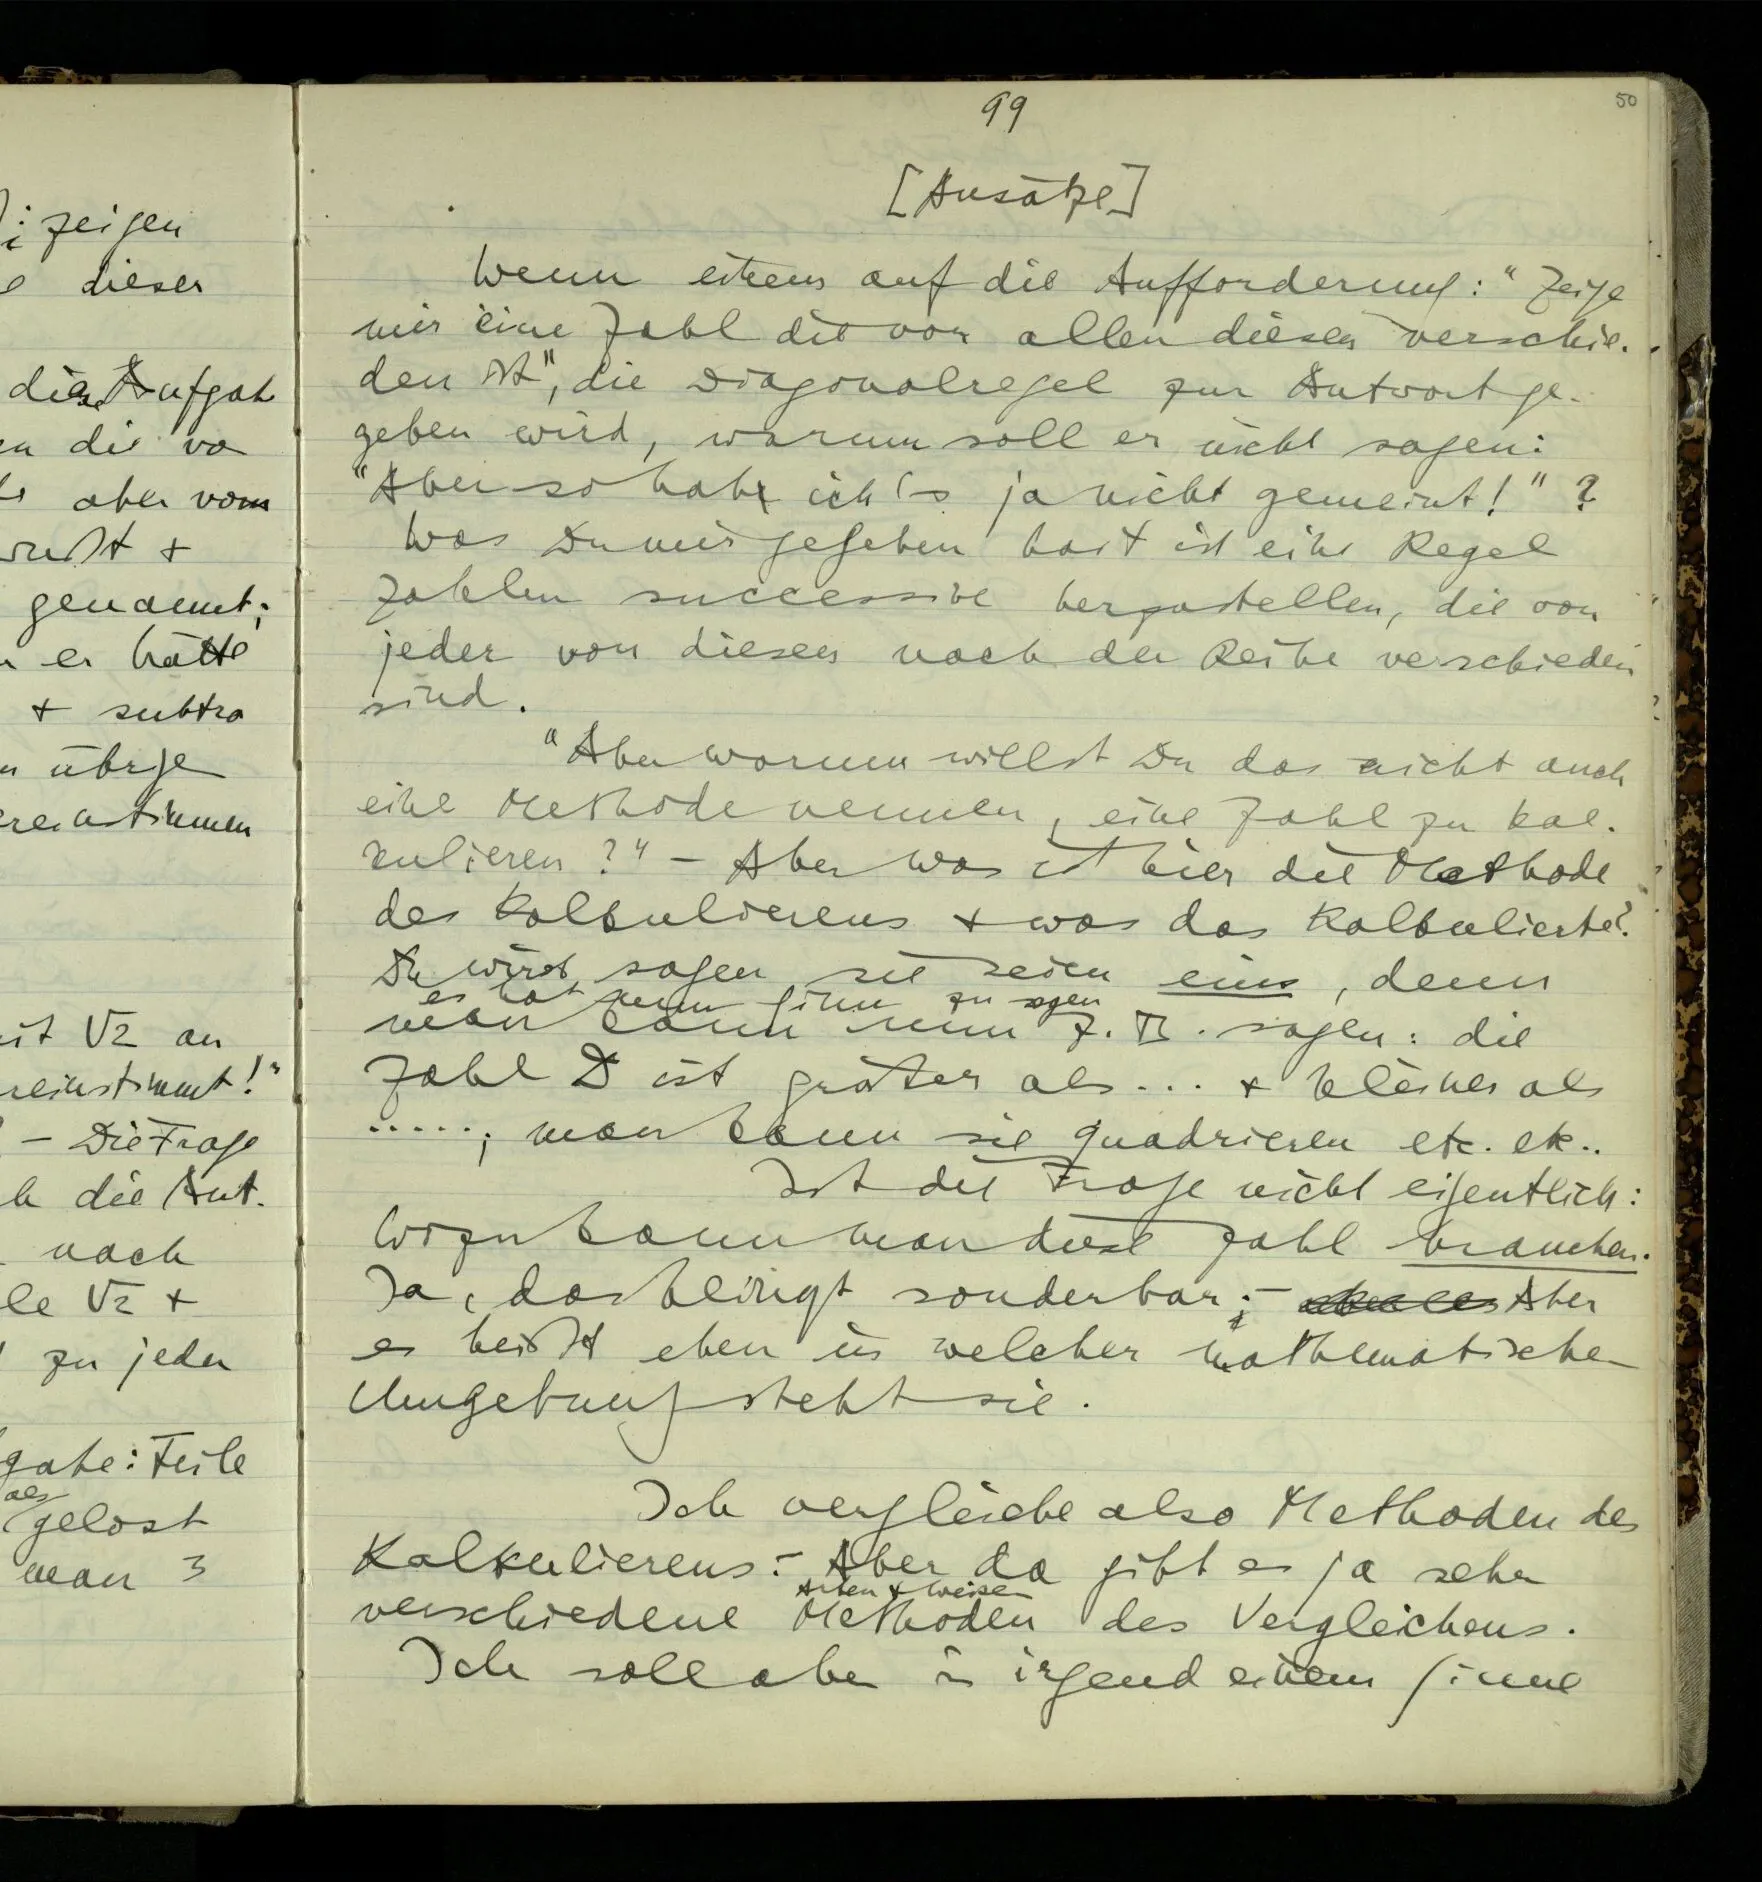 i zeigen
dieser
die Aufgab
die vo
aber vom
genannt;
er hätte
+ subtra
übrige
it √2 an
reinstimmt!"
– Die Frage
die Ant-
nach
le √2 +
zu jeder
gabe: Teile
als
gelöst
man 3
99
50
[Ansätze]
Wenn einem auf die Aufforderung: "Zeige
mir eine Zahl die von allen diesen verschie-
den ist", die Diagonalregel zur Antwort ge-
geben wird, warum soll er nicht sagen:
"Aber so hab ich's ja nicht gemeint!"?
Was Du mir gegeben hast ist eine Regel
Zahlen successive herzustellen, die von
jeder von diesen nach der Reihe verschieden
sind.
"Aber warum willst Du das nicht auch
eine Methode nennen, eine Zahl zu kal-
kulieren?" – Aber was ist hier die Methode
des Kalkulierens + was das Kalkulierte?
Du wirst sagen sie seien eins, denn
es hat nun Sinn zu sagen
man kann nun z.B. sagen: die
Zahl D ist größer als ... + kleiner als
.....; man kann sie quadrieren etc. etc..
Ist die Frage nicht eigentlich:
Wozu kann man diese Zahl brauchen.
Ja, das klingt sonderbar; – Aber
es heißt eben in welcher mathematischen
Umgebung steht sie.
Ich vergleiche also Methoden des
Kalkulierens: – Aber da gibt es ja sehr
Arten & Weisen
verschiedene Methoden des Vergleichens.
Ich soll aber in irgend einem Sinne